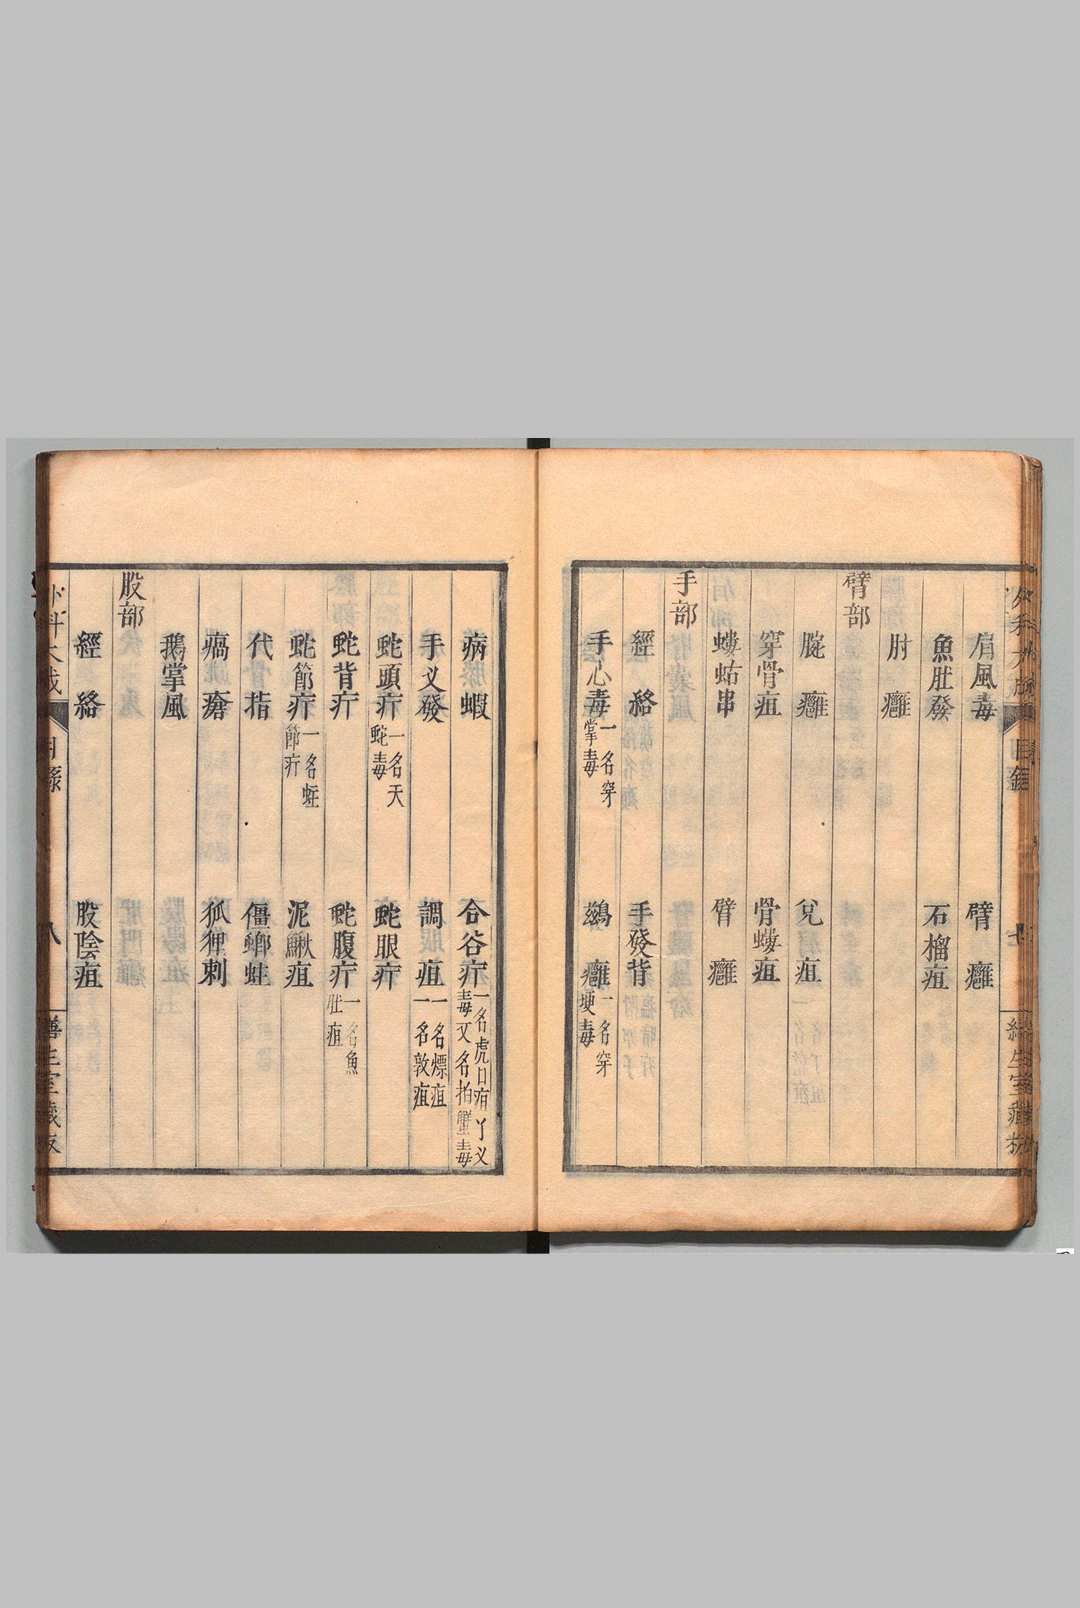 肩風毒 臂癰
魚肚發 石榴疽
肘癰
臂部
腕癰 兌疽
穿骨疽 骨螻疽
螻蛄串 臂癰
手部
經絡 手發背
手心毒一名穿掌毒 鷀癰一名穿埂毒
病蝦 合谷疔一名虎口有丫义毒又名拍蟹毒
手义發 調疽一名熛疽一名敦疽
蛇頭疔一名天蛇毒 蛇眼疔
蛇背疔 蛇腹疔一名魚肚疽
蛇節疔一名蛀節疔 泥鰍疽
代指 僵螂蛀
瘑瘡 狐狸刺
鵝掌風
股部
經絡 股陰疽
外科大成 目錄 八